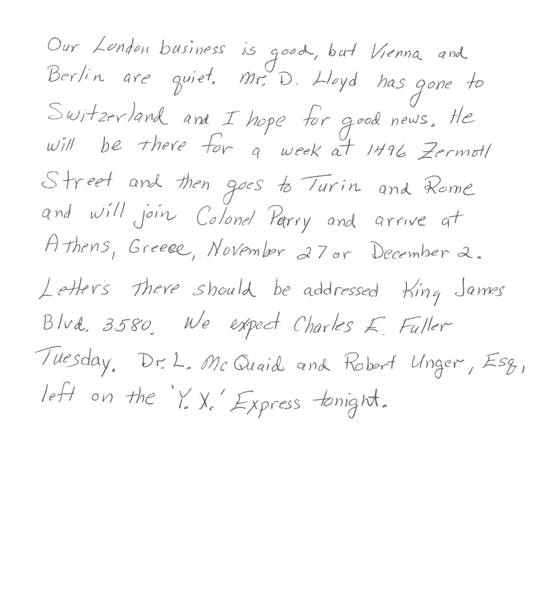 Our London business is good, but Vienna and
Berlin are quiet. Mr. D. Lloyd has gone to
Switzerland and I hope for good news. He
will be there for a week at 1496 Zermott
Street and then goes to Turin and Rome
and will join Colonel Parry and arrive at
Athens, Greece, November 27 or December 2.
Letters there should be addressed King James
Blvd. 3580. We expect Charles E. Fuller
Tuesday. Dr. L. McQuaid and Robert Unger, Esq,
left on the 'Y.X.' Express tonight.